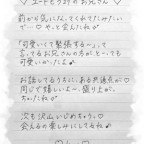 ♡ ユートピアの お兄さん ♡
前から気になってくれてたみたい
で…♡ やっと会えたね
「可愛いくて緊張する〜」って
言ってるお兄さんの方が、とっても
可愛かったよ
お話してるうちに、ある共通点が
同じで嬉しいよー、盛り上が
ったね
次も沢山いじめちゃう♡
会えるの楽しみにしてるね